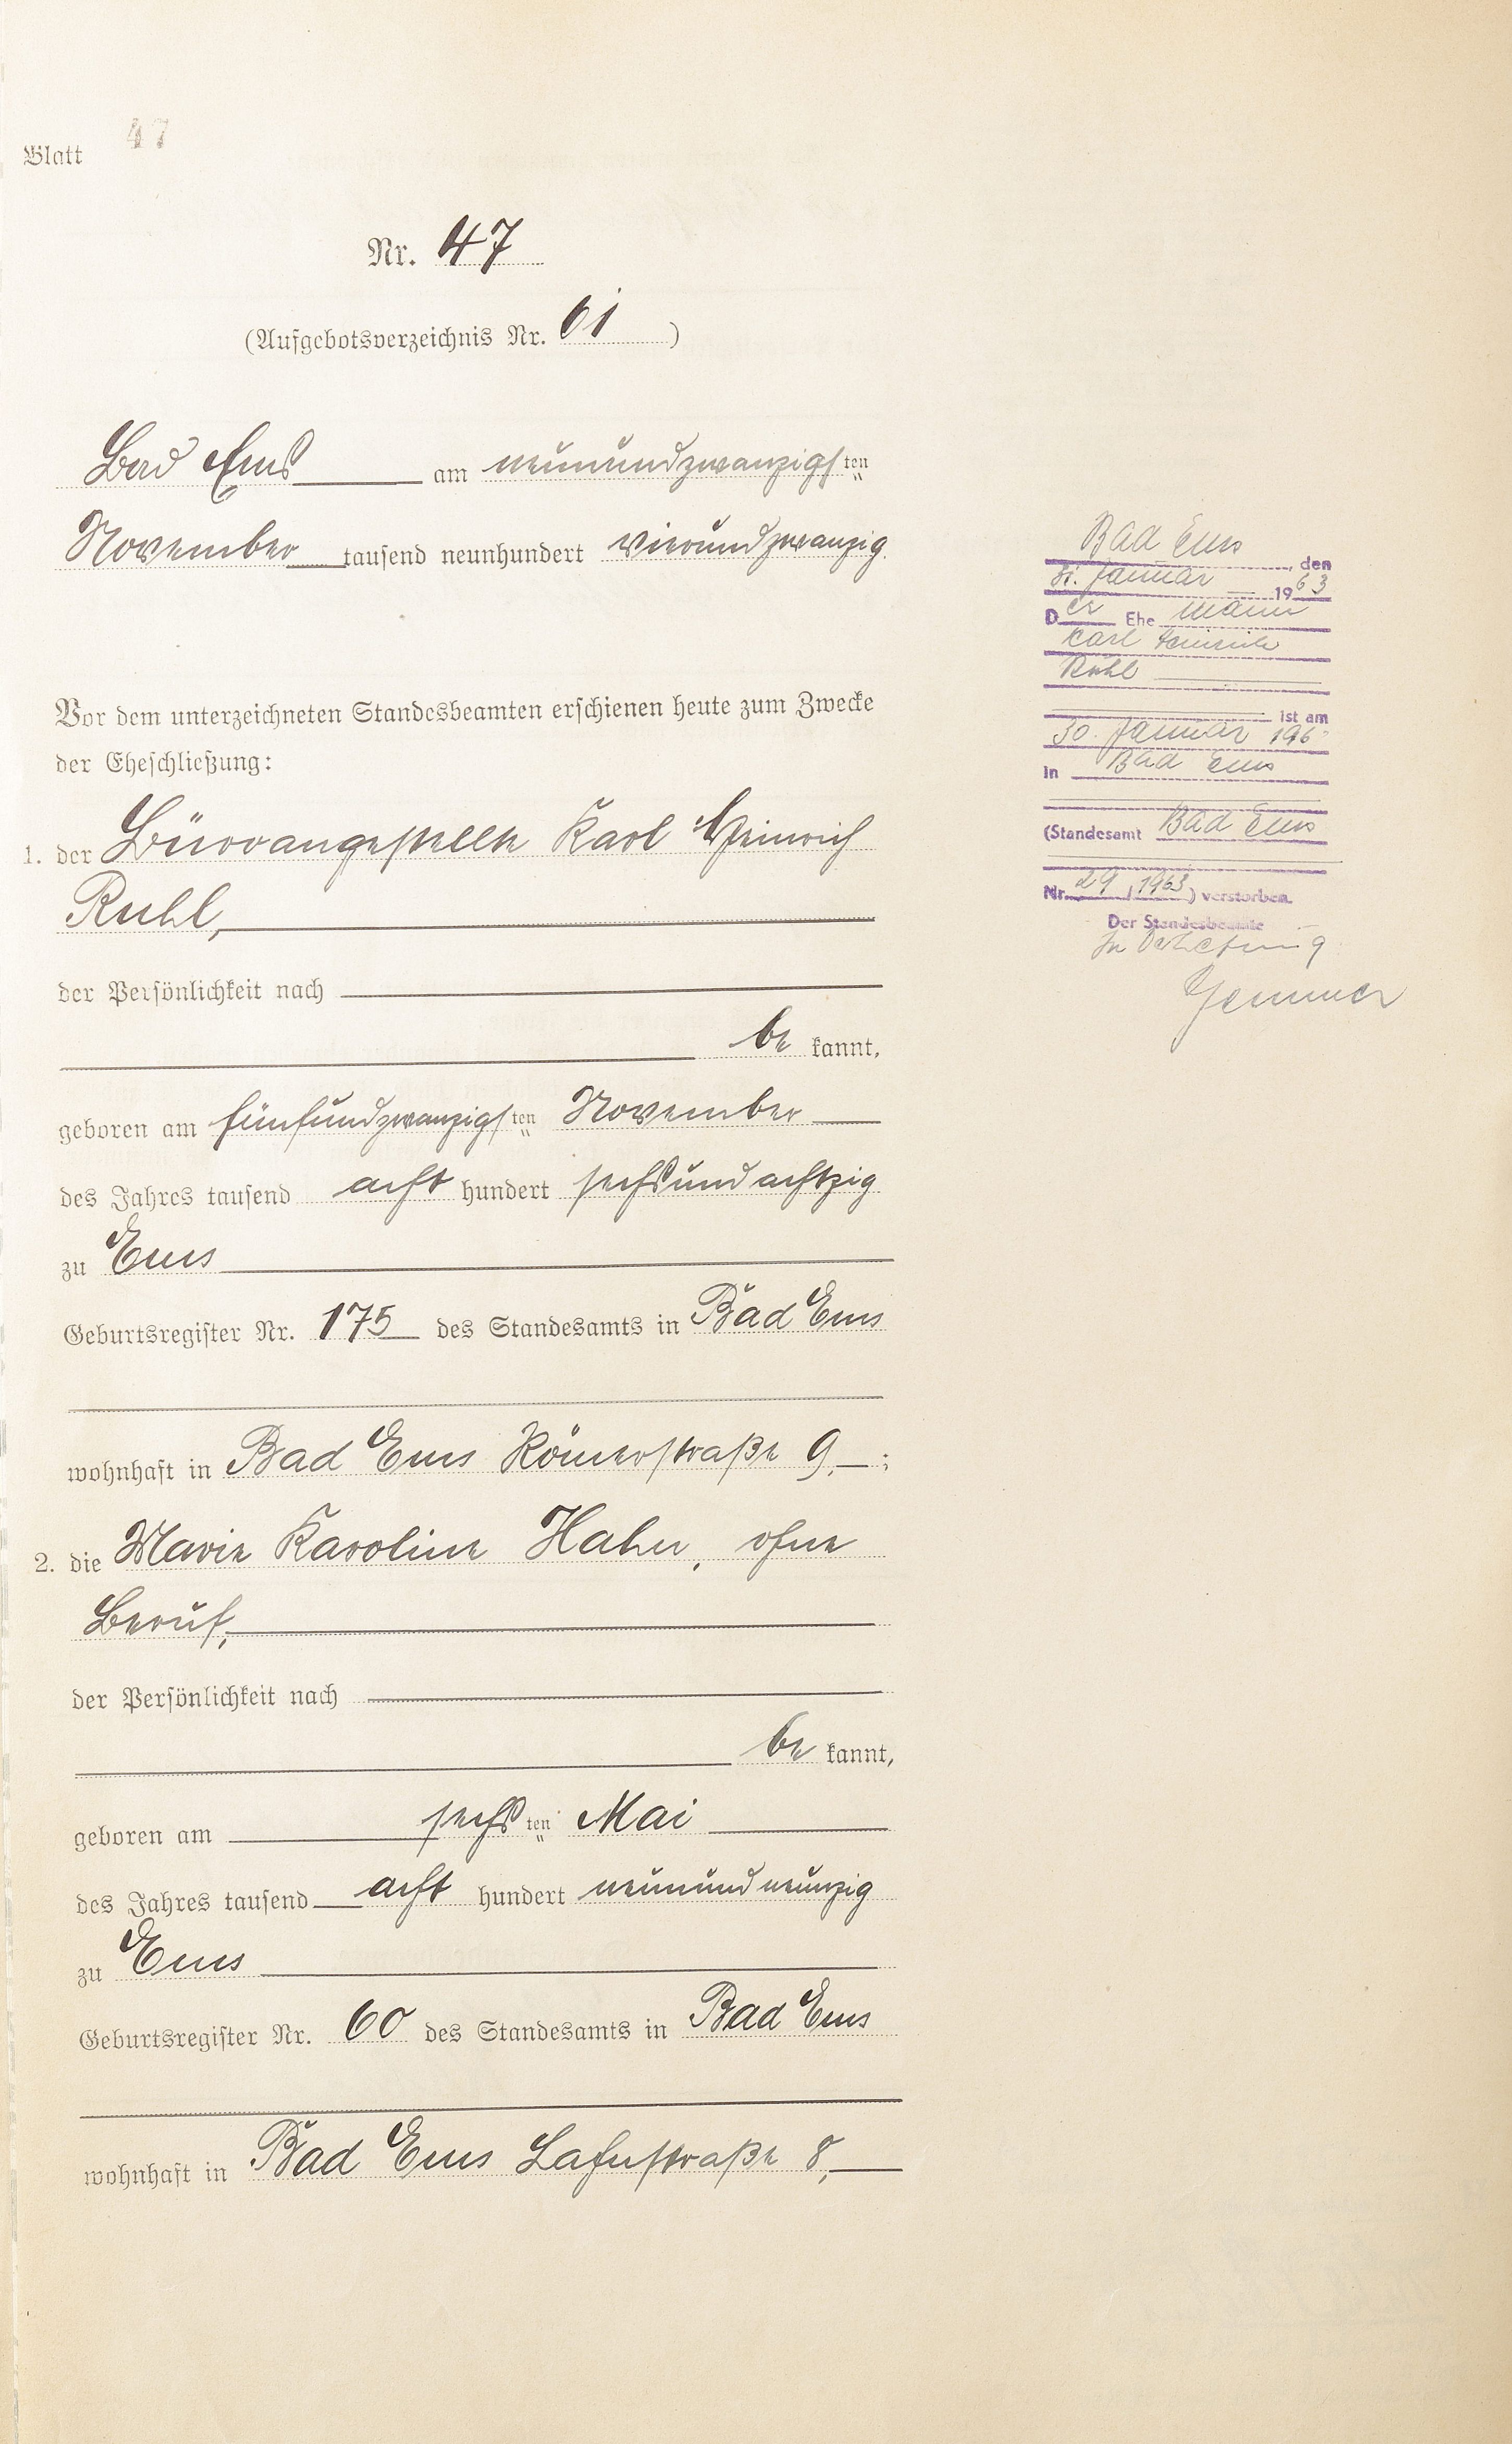 Blatt 47
Nr. 47
(Aufgebotsverzeichnis Nr. 61)
Bad Ems am neunundzwanzigsten
November tausend neunhundert vierundzwanzig.
Vor dem unterzeichneten Standesbeamten erschienen heute zum Zwecke
der Eheschließung:
1. der Büroangestellte Karl Heinrich
Ruhl,
der Persönlichkeit nach
bekannt,
geboren am fünfundzwanzigsten November
des Jahres tausend acht hundert sechsundachtzig
zu Ems
Geburtsregister Nr. 175 des Standesamts in Bad Ems
wohnhaft in Bad Ems Römerstraße 9,;
2. die Marie Karoline Hahn, ohne
Beruf,
der Persönlichkeit nach
bekannt,
geboren am sechsten Mai
des Jahres tausend acht hundert neunundneunzig
zu Ems
Geburtsregister Nr. 60 des Standesamts in Bad Ems
wohnhaft in Bad Ems Lahnstraße 8,
Bad Ems, den
31. Januar 1963
Der Ehe mann
Karl Heinrich
Ruhl
ist am
30. Januar 196
in Bad Ems
(Standesamt Bad Ems
Nr. 29/1963) verstorben.
Der Standesbeamte
In Vertretung